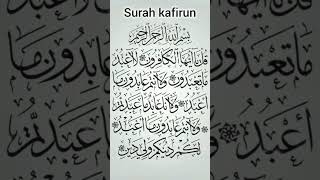 Surah kafirun
بسم الله الرحمن الرحيم
قل يا أيها الكافرون لا أعبد
ما تعبدون ولا أنتم عابدون ما
أعبد ولا أنا عابد ما عبدتم
ولا أنتم عابدون ما أعبد
لكم دينكم ولي دين